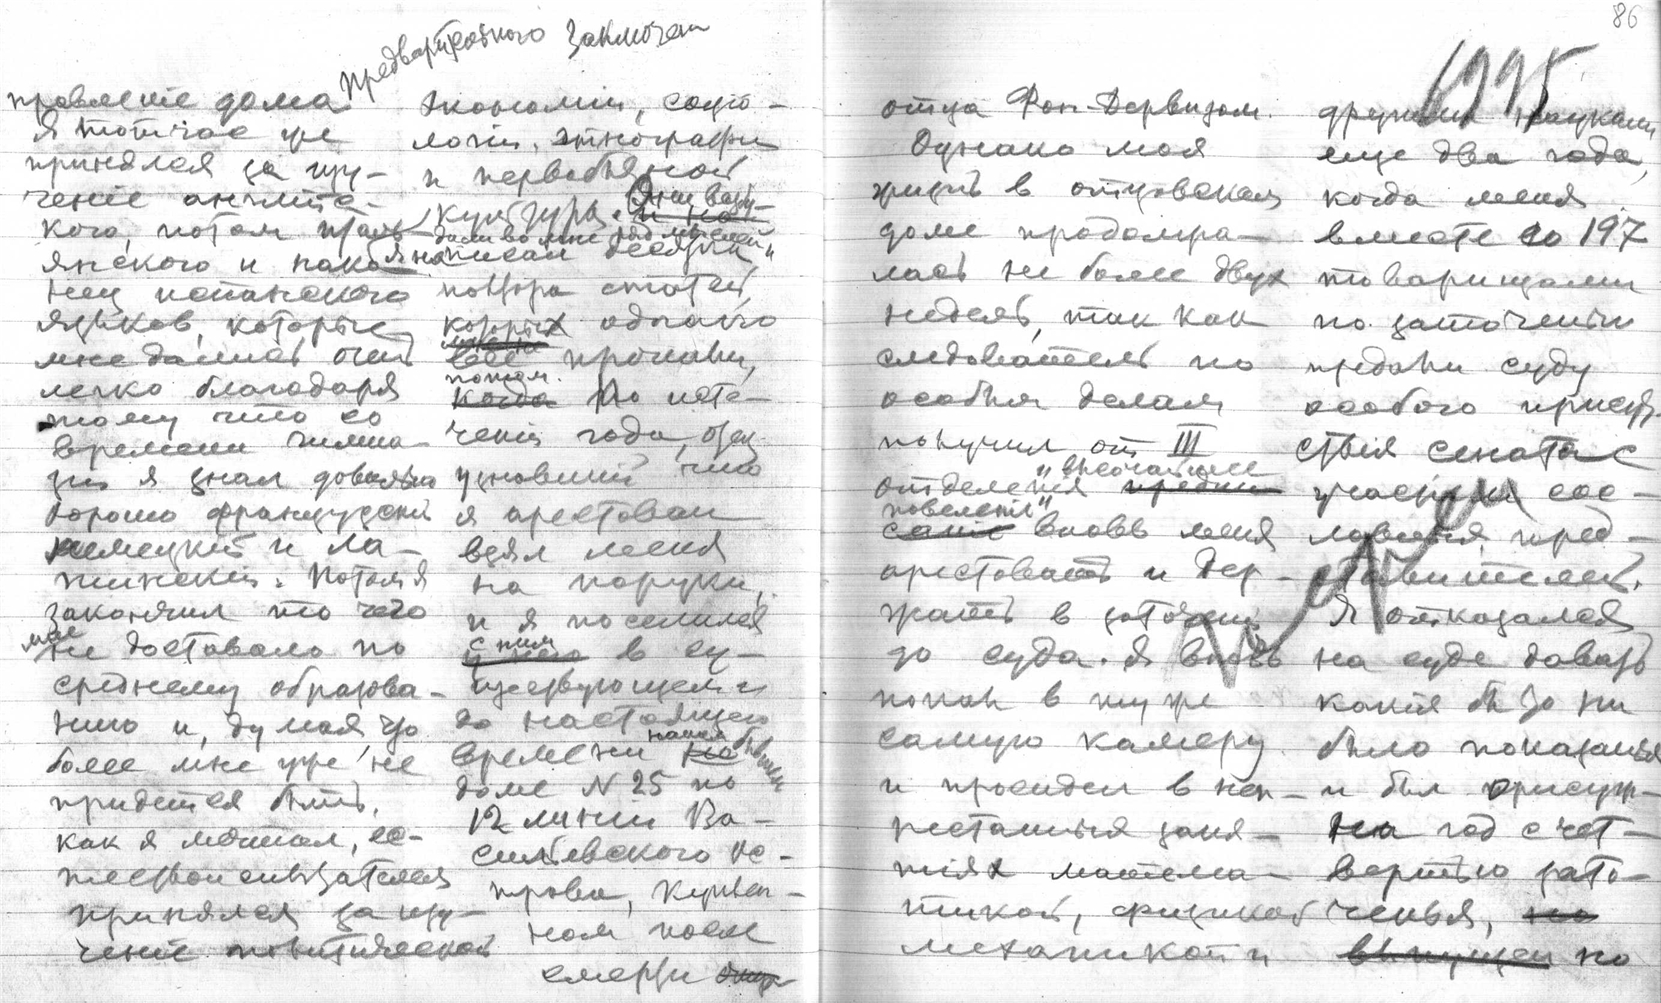 предварительного заключен
правление дома
Я тотчас же
принялся за изу-
чение англiйс-
кого, потом италь-
янского и нако-
нец испанского
языков, которые
мне дались очень
легко благодаря
тому что со
времени гимна-
зии я знал довольно
хорошо французский
немецкий и ла-
тинский. Потом я
закончил то чего
мне не доставало по
среднему образова-
нию и, думая что
более мне уже не
придется быть,
как я мечтал, ес-
тествоиспытателем
принялся за изу-
чение политической
экономии, социо-
логiи, этнографiи
и первобытной
культуры. Они возбу-
дили во мне ряд мыслей
я написал десятки
полтора статей,
которых однако
все пропали,
потом.
когда По исте-
ченiи года, отец
узнавший что
я арестован
взял меня
на поруки,
и я поселился
с ним в су-
ществующем и
до настоящего
времени нашем бывшем
доме N 25 по
12 линiи Ва-
сильевского ос-
трова, купленном
ном после
смерти отца
86
1995
отца Фон-Дервизом.
Однако моя
жизнь в отцовском
доме продолжа-
лась не более двух
недель, так как
следователь по
особым делам
получил от III
отделения "высочайшее
повеленiе"
вновь меня
арестовать и дер-
жать в заточенiи
до суда. Я вновь
попал в ту же
самую камеру
и просидел в неп-
рестанных заня-
тiях матема-
тикой, физикой
механикой и
другими науками
еще два года,
когда меня
вместе со 197
товарищами
по заточенью
предали суду
особого присут-
ствiя сената с
участием сос-
ловных пред-
ставителей.
Я отказался
на суде давать
какiя бы то ни
было показанья
и был присуж-
на год с чет-
вертью зато-
ченья, на
выпущен по